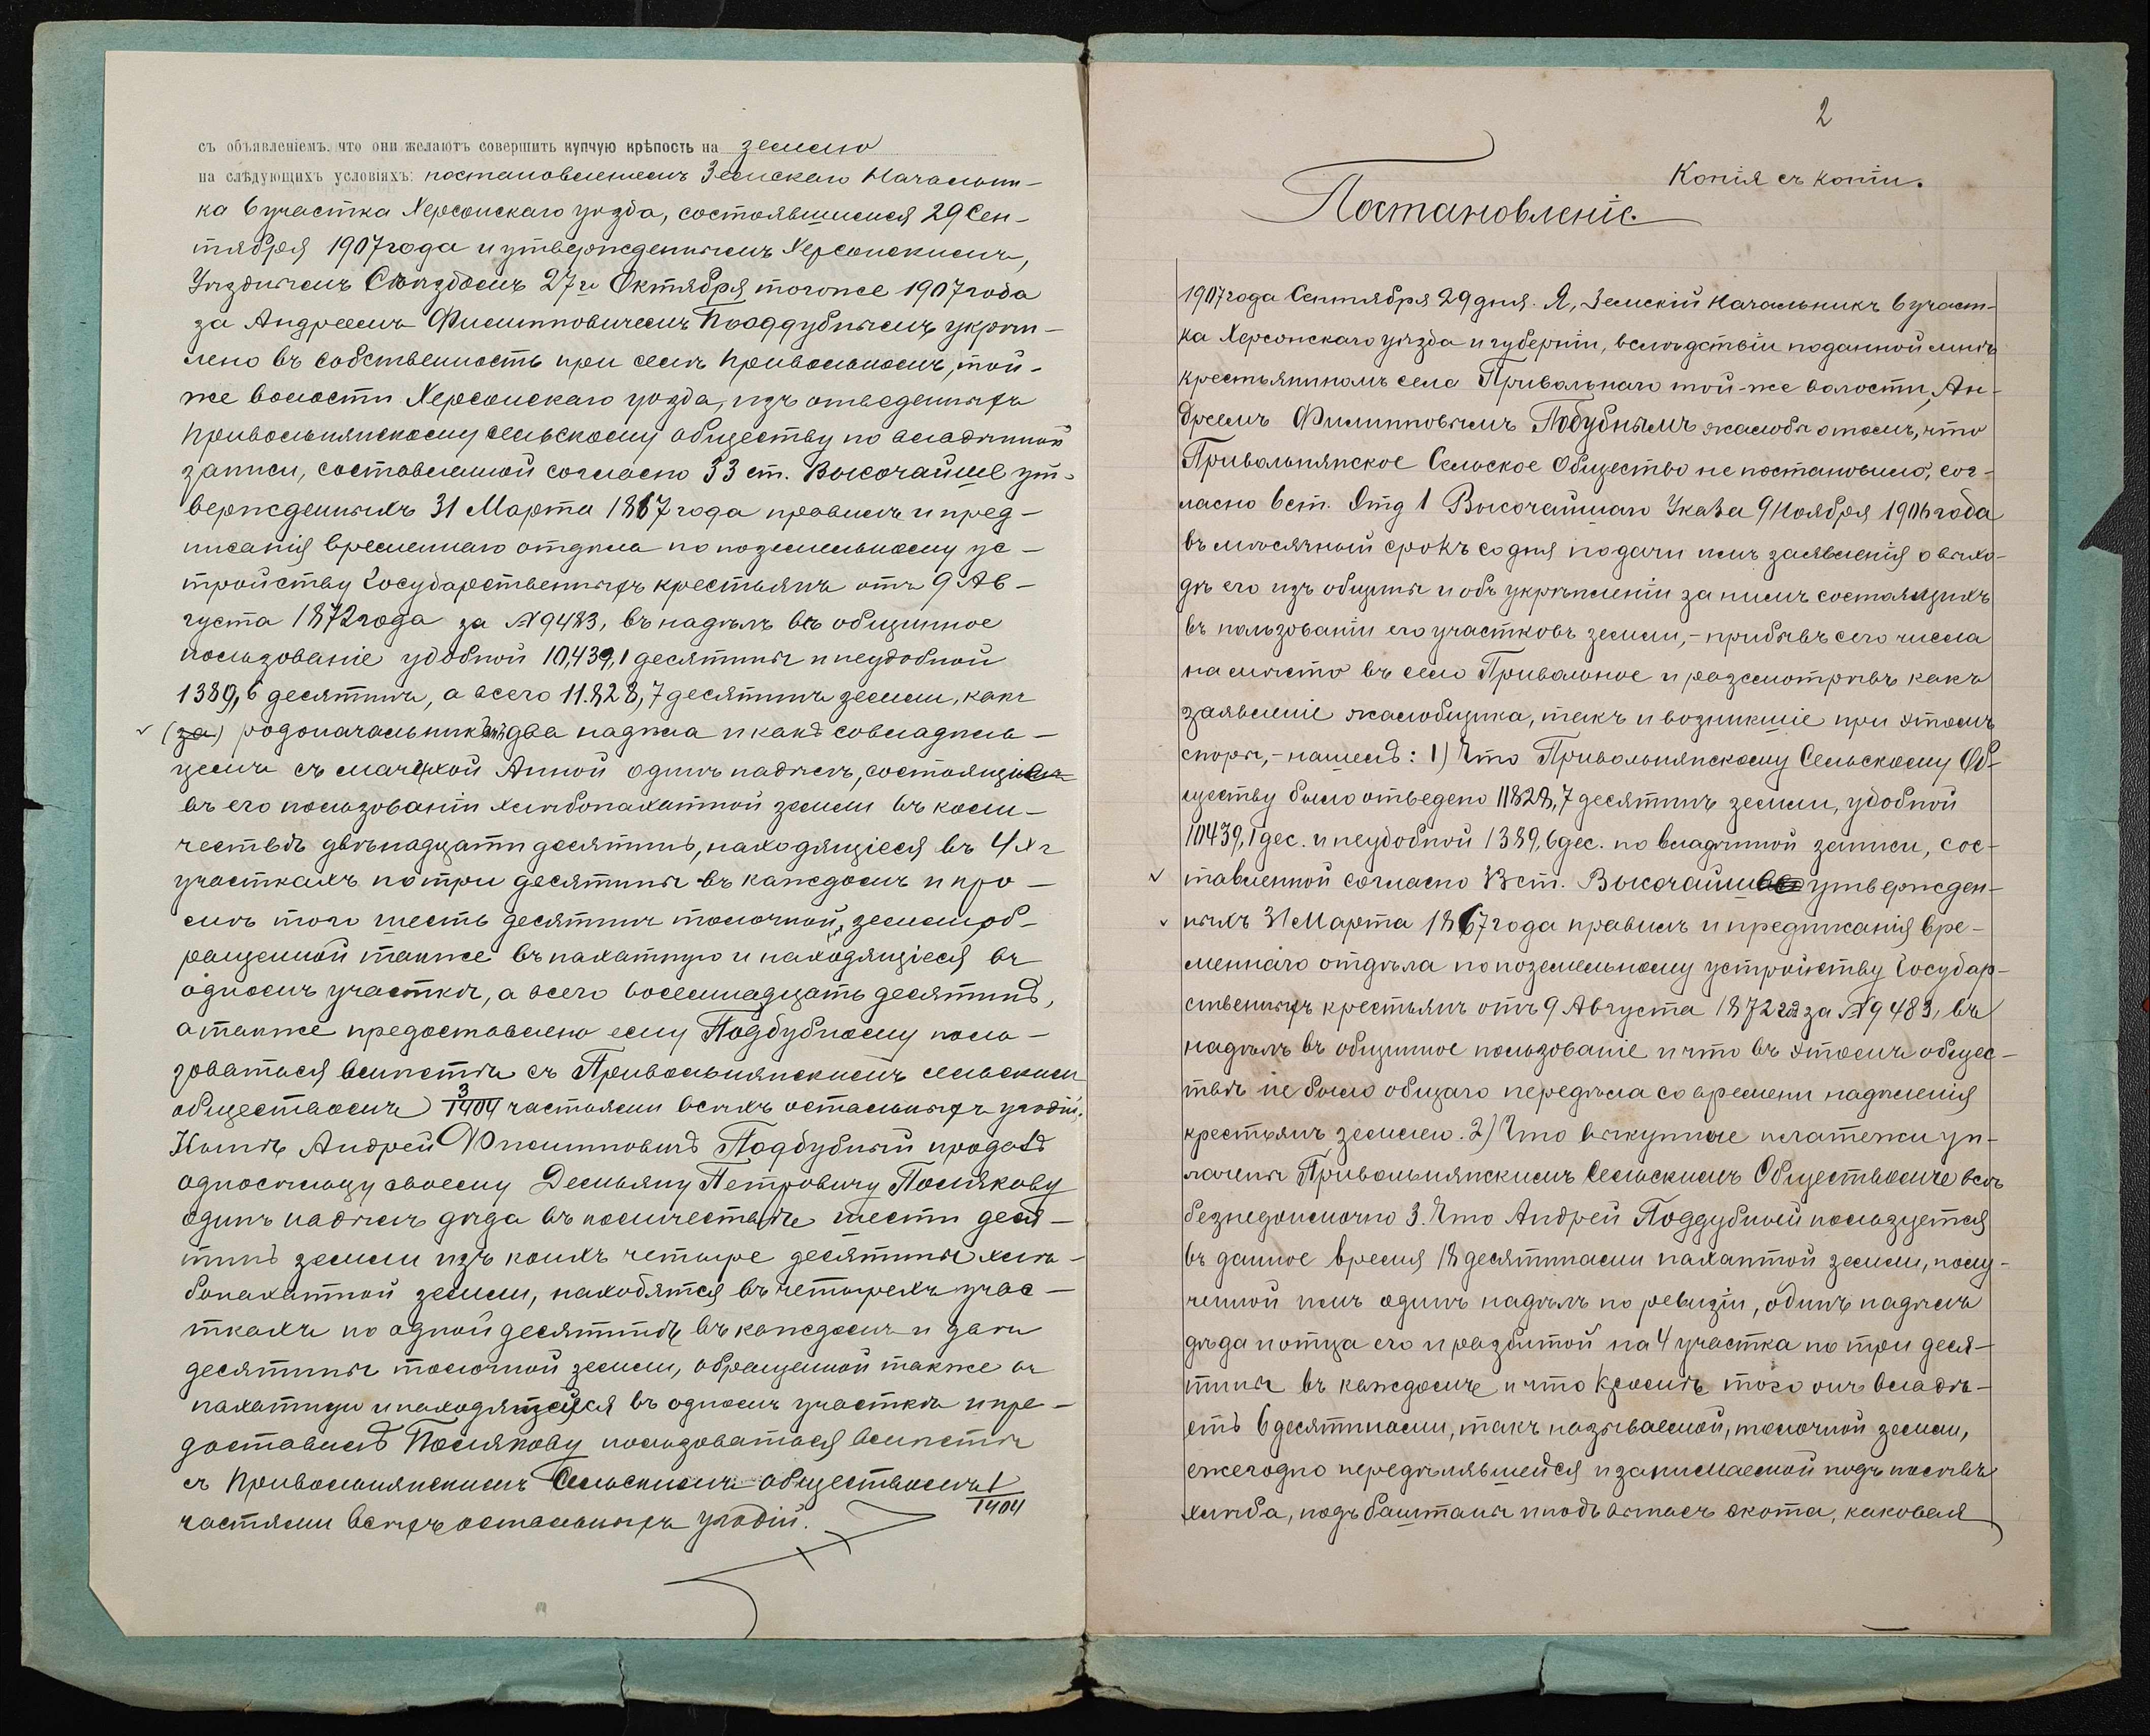 съ объявленіемъ, что они желаютъ совершить купчую крѣпость на землю
на слѣдующихъ условіяхъ: постановленіемъ Земскаго Начальни-
ка 6 участка Херсонскаго уѣзда, состоявшимся 29 Сен-
тября 1907 года и утвержденнымъ Херсонскимъ,
Уѣзднымъ Съѣздомъ 27го Октября тогоже 1907 года
за Андреемъ Филипповичемъ Поддубнымъ укрѣп-
лено въ собственность при селѣ Привольномъ, той-
же волости Херсонскаго уѣзда, изъ отведенныхъ
Привольнянскому сельскому обществу по владѣнной
записи, составленной согласно 33 ст. Высочайше ут-
вержденныхъ 31 Марта 1867 года правилъ и пред-
писанія временнаго отдѣла по поземельному ус-
тройству Государственныхъ крестьянъ отъ 9 Ав-
густа 1872 года за №9483, въ надѣлъ въ общинное
пользованіе удобной 10,439,1 десятины и неудобной
1389,6 десятинъ, а всего 11.828,7 десятинъ земли, какъ
(за) родоначальникомъ два надѣла и какъ совладѣль-
цемъ съ мачехой Анной одинъ надѣлъ, состоящій
въ его пользованіи хлѣбопахатной земли въ коли-
чествѣ двѣнадцати десятинъ, находящіеся въ 4хъ
участкахъ по три десятины въ каждомъ и кро-
мѣ того шесть десятинъ толочной, земли об-
ращенной также въ пахатную и находящіеся въ
одномъ участкѣ, а всего восемнадцать десятинъ,
а также предоставлено ему Поддубному поль-
зоваться вмѣстѣ съ Привольнянскимъ сельскимъ
обществомъ 3/1404 частями всѣхъ остальныхъ угодій.
Нынѣ Андрей Филипповичъ Поддубный продалъ
односельцу своему Демьяну Петровичу Полякову
одинъ надѣлъ дѣда въ количествѣ шести деся-
тинъ земли изъ коихъ четыре десятины хлѣ-
бопахатной земли, находятся въ четырехъ учас-
ткахъ по одной десятинѣ въ каждомъ и двѣ
десятины толочной земли, обращенной также въ
пахатную и находящейся въ одномъ участкѣ и пре-
доставилъ Полякову пользоваться вмѣстѣ
съ Привольнянскимъ Сельскимъ обществомъ 1/1404
частями всѣхъ остальныхъ угодій.
2
Копія съ копіи.
Постановленіе.
1907 года Сентября 29 дня. Я, Земскій Начальникъ 6 участ-
ка Херсонскаго уѣзда и губерніи, вслѣдствіи поданной мнѣ
крестьяниномъ села Привольнаго той-же волости, Ан-
дреемъ Филипповымъ Подубнымъ жалобы о томъ, что
Привольнянское Сельское Общество не постановило, сог-
ласно 6 ст. Отд 1 Высочайшаго Указа 9 Ноября 1906 года
въ мѣсячный срокъ со дня подачи имъ заявленія о выхо-
дѣ его изъ общины и объ укрѣпленіи за нимъ состоящихъ
въ пользованіи его участковъ земли,- прибывъ сего числа
на мѣсто въ село Привольное и разсмотрѣвъ какъ
заявленіе жалобщика, такъ и возникшіе при этомъ
споры,- нашелъ: 1) Что Привольнянскому Сельскому Об-
ществу было отведено 11828,7 десятинъ земли, удобной
10439,1 дес. и неудобной 1389,6 дес. по владѣнной записи, сос-
тавленной согласно 33 ст. Высочайше утвержден-
ныхъ 31 Марта 1867 года правилъ и предписанія вре-
меннаго отдѣла по поземельному устройству Государ-
ственныхъ крестьянъ отъ 9 Августа 1872 года за №9483, въ
надѣлъ въ общинное пользованіе и что въ этомъ общес-
твѣ не было общаго передѣла со времени надѣленія
крестьянъ землею. 2) Что выкупные платежи уп-
лачены Привольнянскимъ Сельскимъ Обществомъ всѣ
безнедоимочно 3. Что Андрей Поддубный пользуется
въ данное время 18 десятинами пахатной земли, полу-
ченной имъ одинъ надѣлъ по ревизіи, одинъ надѣлъ
дѣда и отца его и разбитой на 4 участка по три деся-
тины въ каждомъ и что кромѣ того онъ владѣ-
етъ 6 десятинами, такъ называемой, толочной земли,
ежегодно передѣлявшейся и занимаемой подъ посѣвъ
хлѣба, подъ баштаны и подъ выпасъ скота, каковая